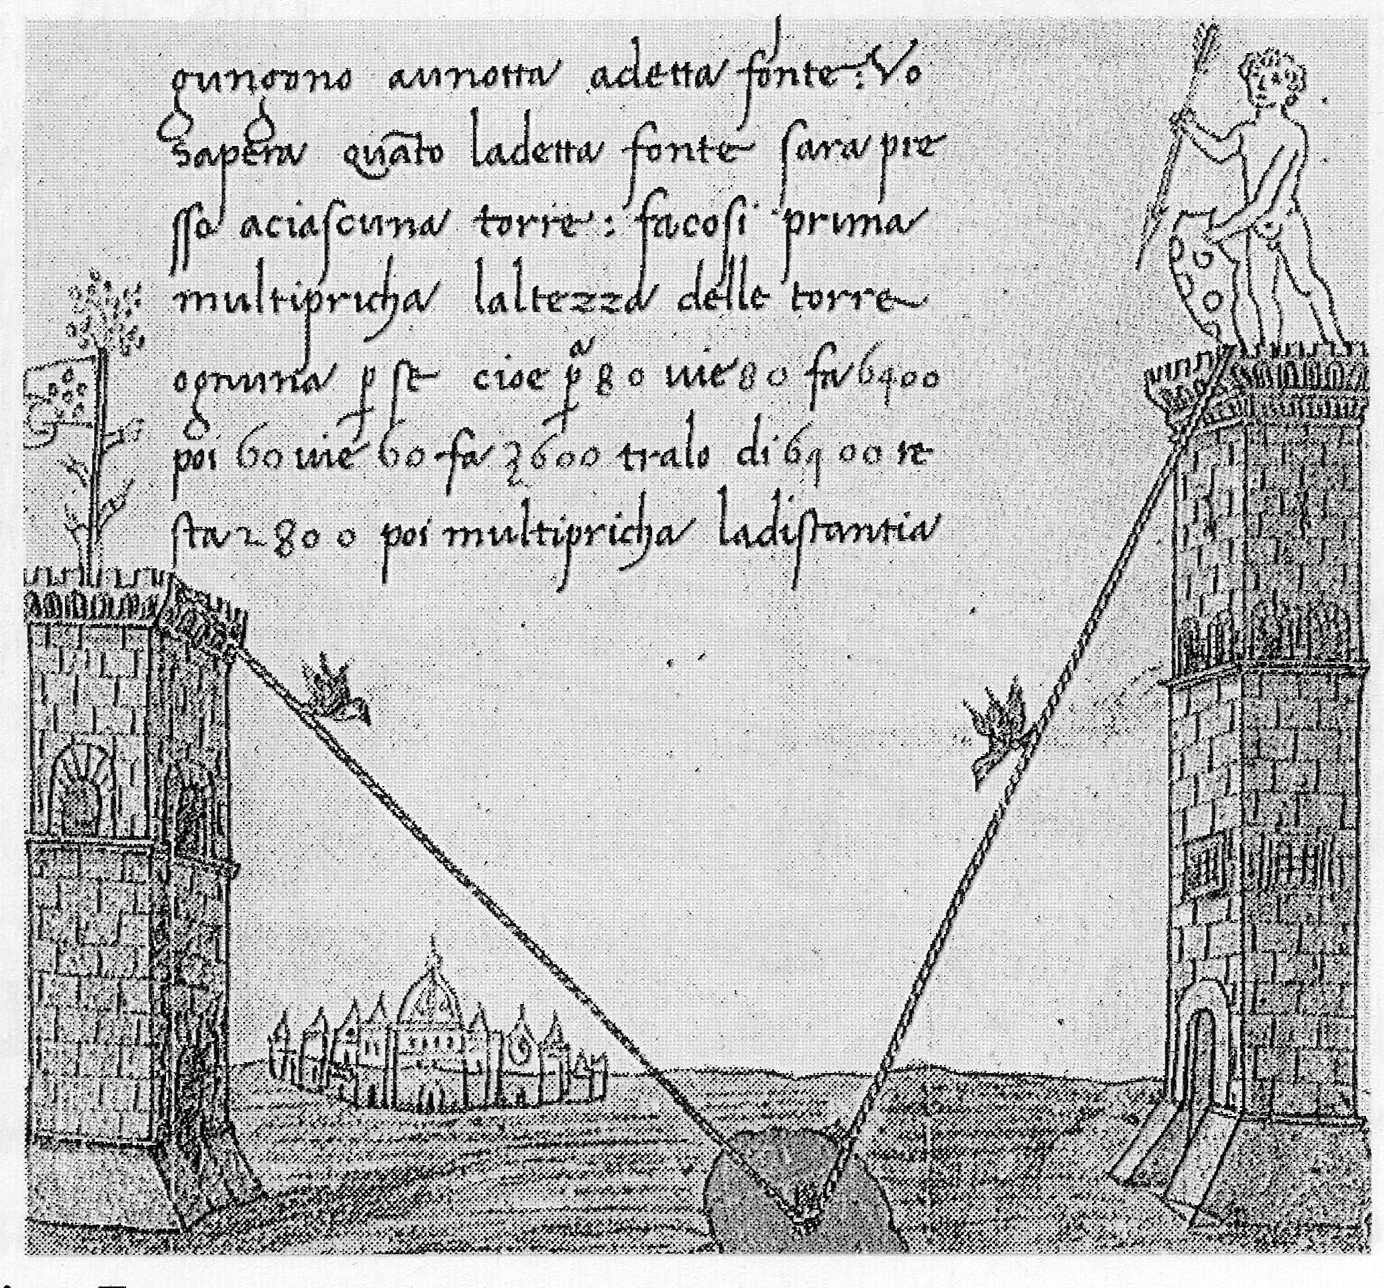 gungono aunotta adetta fonte: Vo
Sapera quāto ladetta fonte sara pre
sso aciascuna torre: facosi prima
multipricha laltezza delle torre
ognuna p se cioe pᵃ 80 uie 80 fa 6400
poi 60 uie 60 fa 3600 tralo di 6400 re
sta 2800 poi multipricha ladistantia